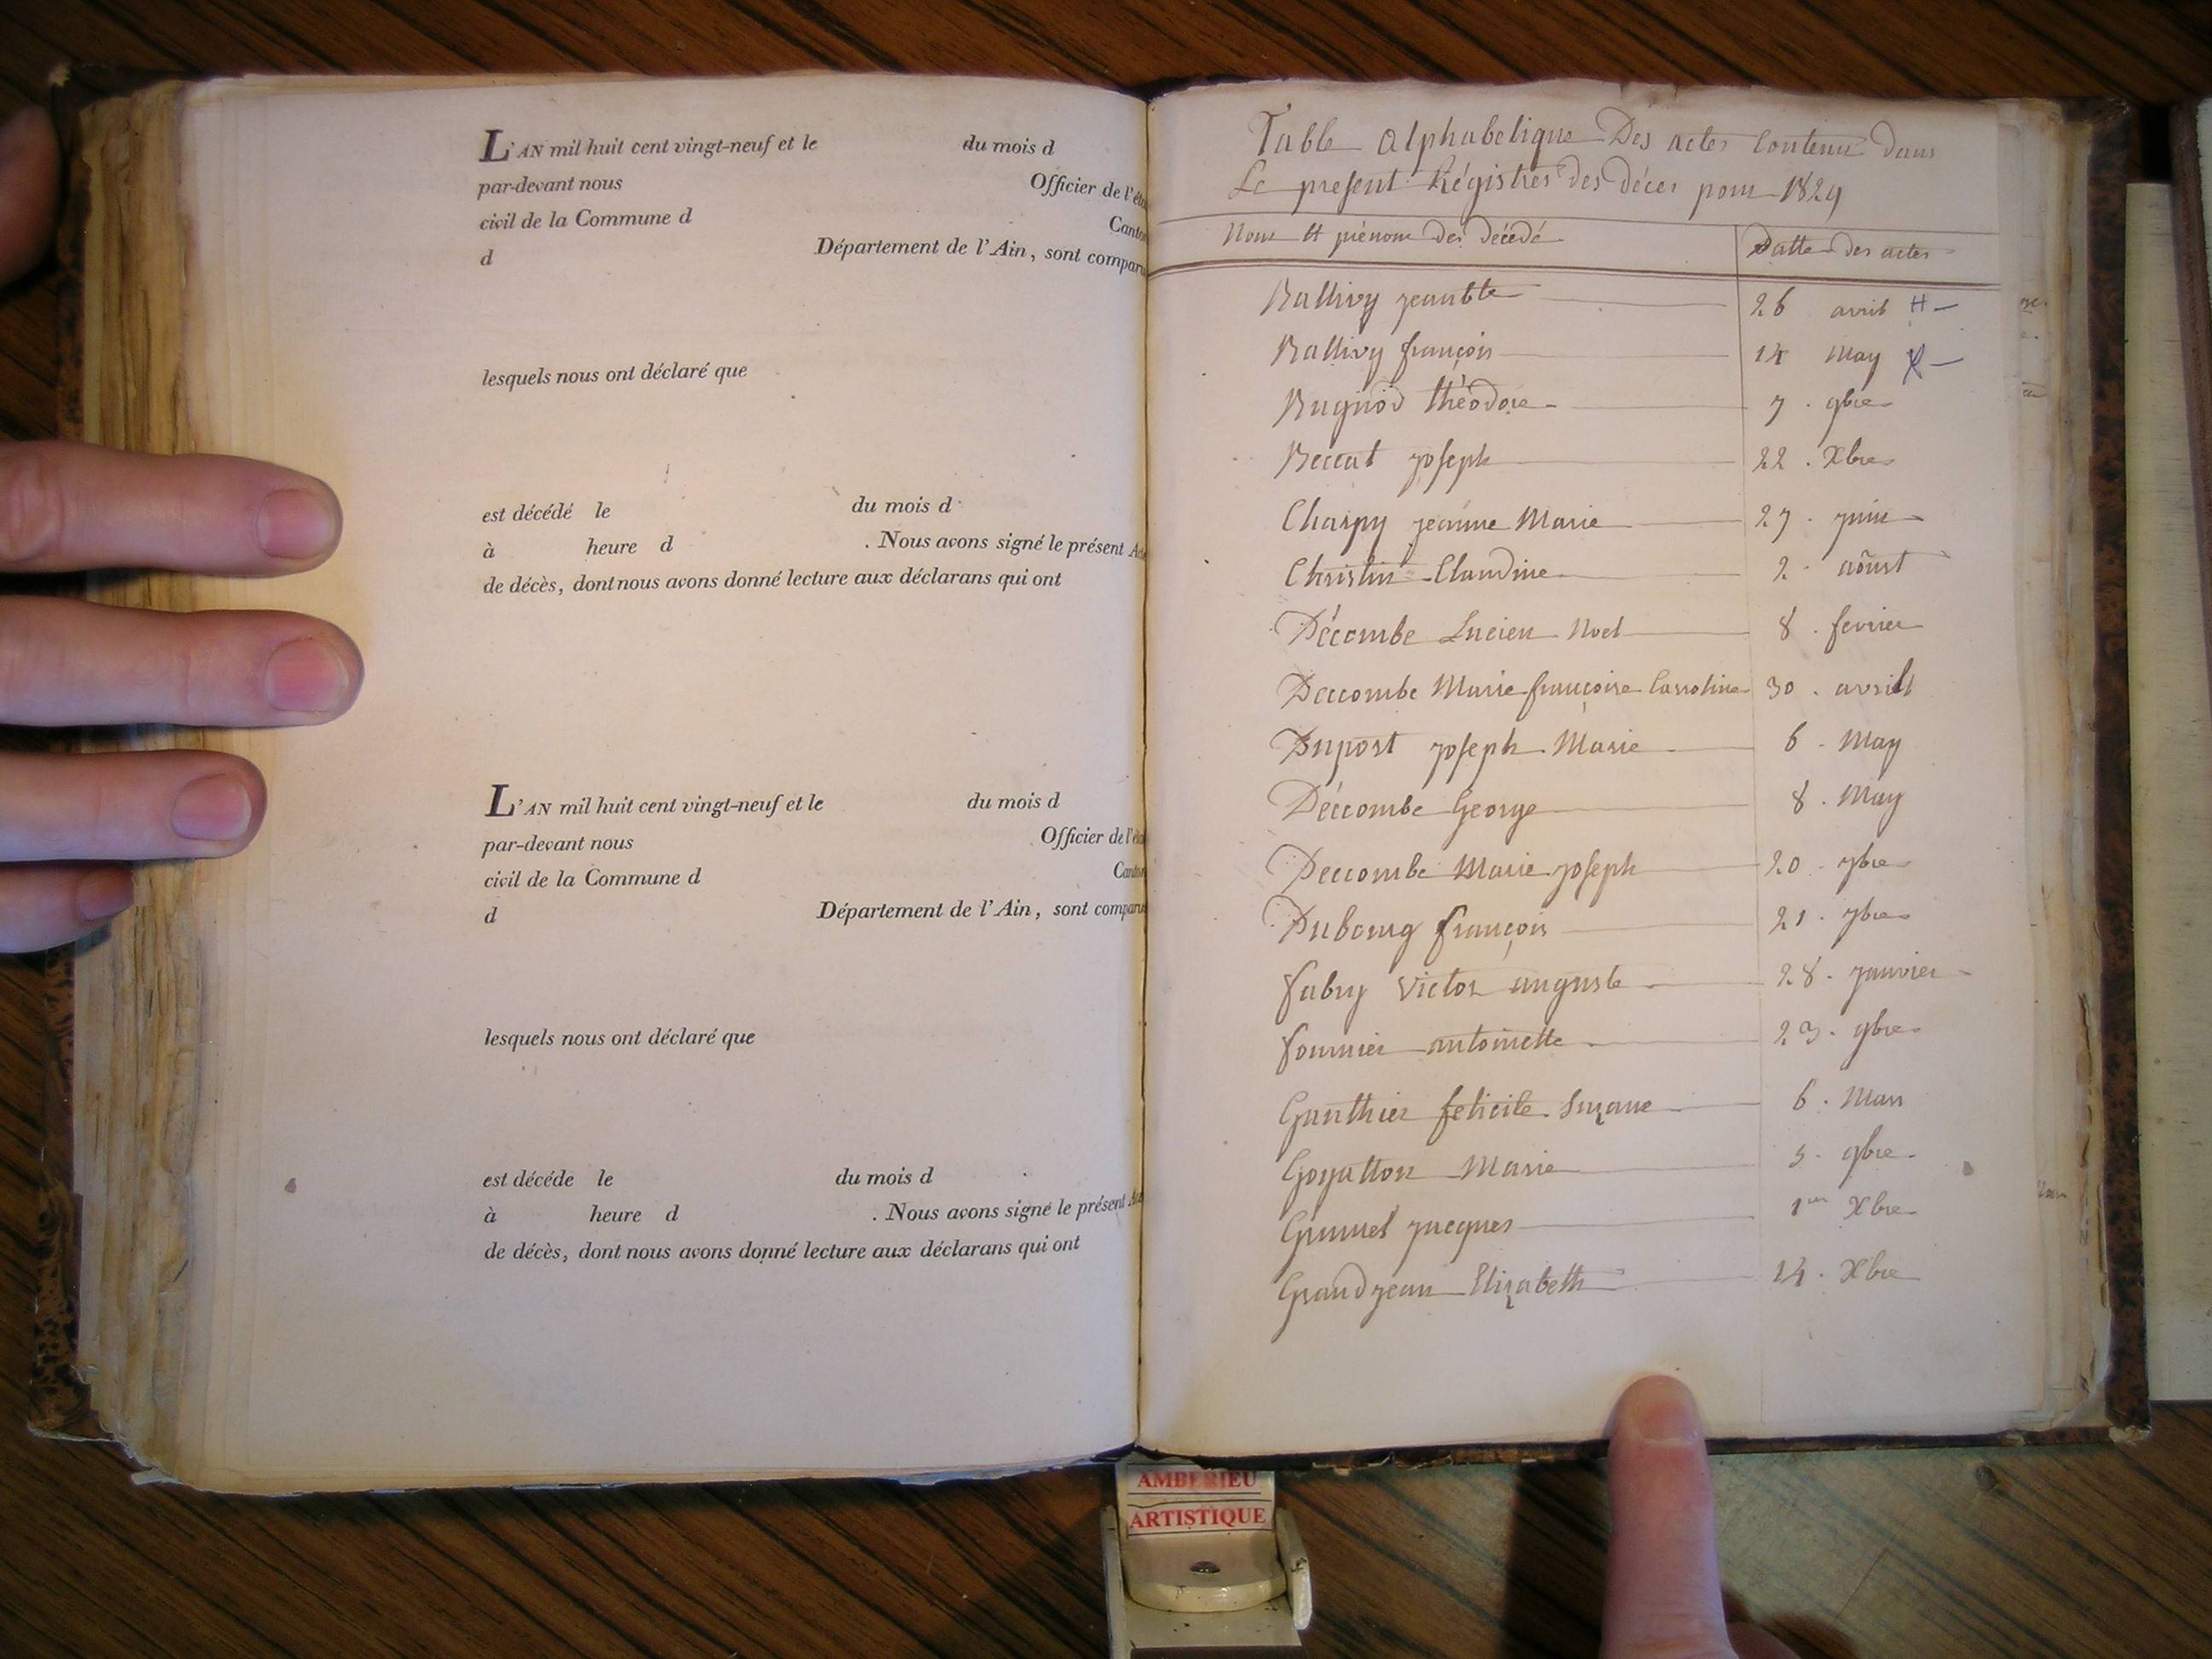 L'AN mil huit cent vingt-neuf et le du mois d
par-devant nous Officier de l'éta
civil de la Commune d Canton
d Département de l'Ain, sont comparu
lesquels nous ont déclaré que
est décédé le du mois d
à heure d . Nous avons signé le présent Acte
de décès, dont nous avons donné lecture aux déclarans qui ont
L'AN mil huit cent vingt-neuf et le du mois d
par-devant nous Officier de l'éta
civil de la Commune d Canton
d Département de l'Ain, sont comparu
lesquels nous ont déclaré que
est décédé le du mois d
à heure d . Nous avons signé le présent
de décès, dont nous avons donné lecture aux déclarans qui ont
Table alphabetique Des actes Contenu dans
Le present Régistres des déces pour 1829
Nom et prénom des décédé Datte des actes
Ballivy jeanbte 26 avril H -
Ballivy françois 14 May X -
Bugnod théodore 7 . 9bre
Beccat joseph 22 . Xbre
Charpy jeanne Marie 27 . juin
Christin Claudine 2 . août
Décombe Lucien Noel 8 . fevrier
Deccombe Marie françoise Carroline 30 . avrill
Dupost joseph Marie 6 . May
Déccombe George 8 . May
Deccombe Marie joseph 20 . 7bre
Dubourg françois 21 . 7bre
fabry Victor auguste 28 . janvier
fournier antoinette 23 . 9bre
Gauthier felicite Suzane 6 . Mars
Goyatton Marie 5 . 9bre
Grumet jacques 1er Xbre
Grandjean Elizabeth 14 . Xbre
AMBERIEU
ARTISTIQUE